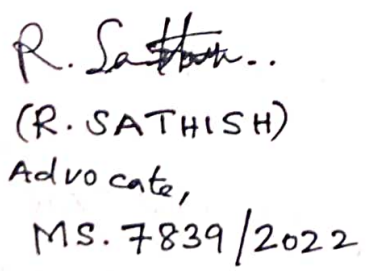 R. Sathish..
(R. SATHISH)
Advocate,
MS. 7839/2022